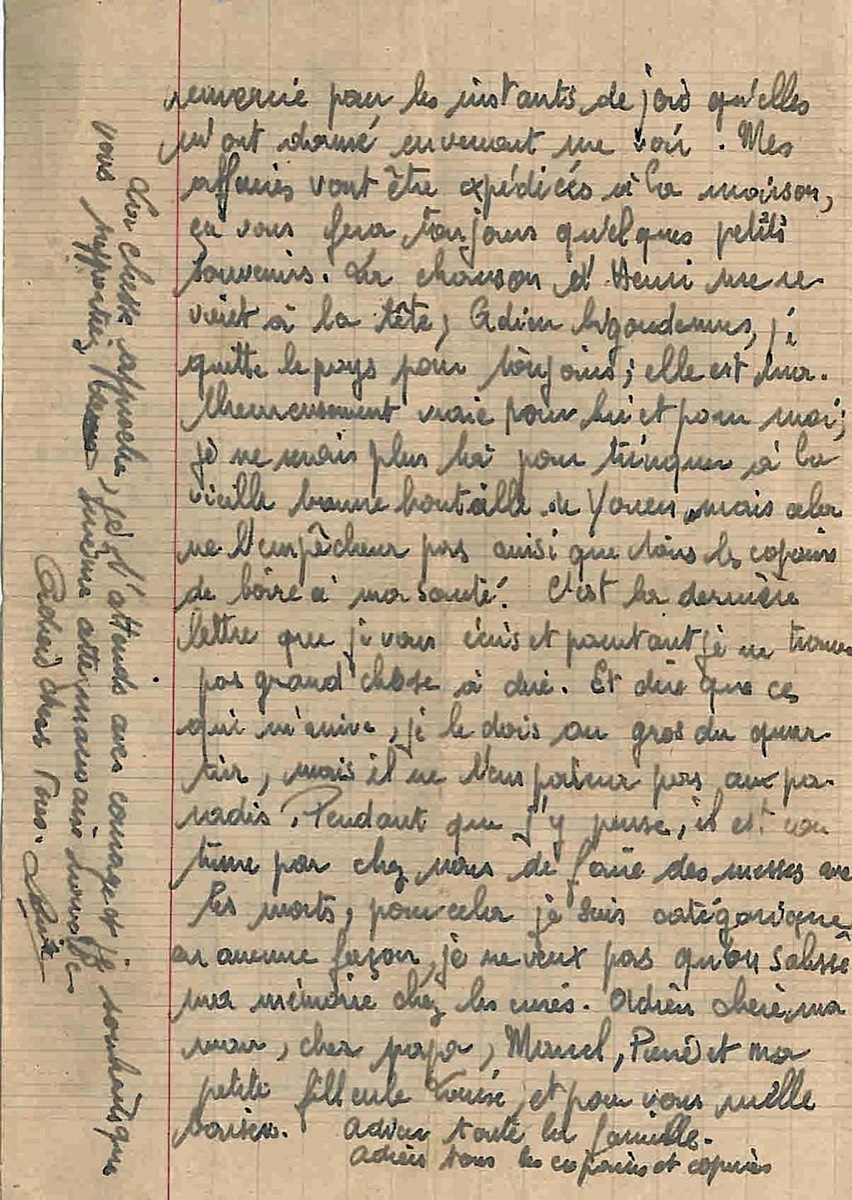 remercie pour les instants de joie qu'elles
m'ont donné en venant me voir. Mes
affaires vont être expédiées à la maison,
ça vous fera toujours quelques petits
souvenirs. La chanson d'Henri me re-
vient à la tête, Adieu bigoudennes, je
quitte le pays pour toujours; elle est mal-
heureusement vraie pour lui et pour moi;
je ne serais plus là pour trinquer à la
vieille bonne bouteille de Youen, mais cela
ne l'empêchera pas ainsi que tous les copains
de boire à ma santé! C'est la dernière
lettre que je vous écris et pourtant je ne trouve
pas grand'chose à dire. Et dire que ce
qui m'arrive, je le dois au gros du quar-
tier, mais il ne l'emportera pas au pa-
radis. Pendant que j'y pense, il est cou
tume par chez nous de faire des messes
les morts, pour cela je suis catégorique
en aucune façon, je ne veux pas qu'on salisse
ma mémoire chez les curés. Adieu chère ma
man, cher papa, Marcel, Pierre et ma
petite filleule Louise, et pour vous mille
baisers. Adieu toute la famille.
Adieu tous les copains et copines
approche, je l'attends avec courage et je souhaite que
vous supportiez même cette mauvaise nouvelle
Adieu chers Tous.